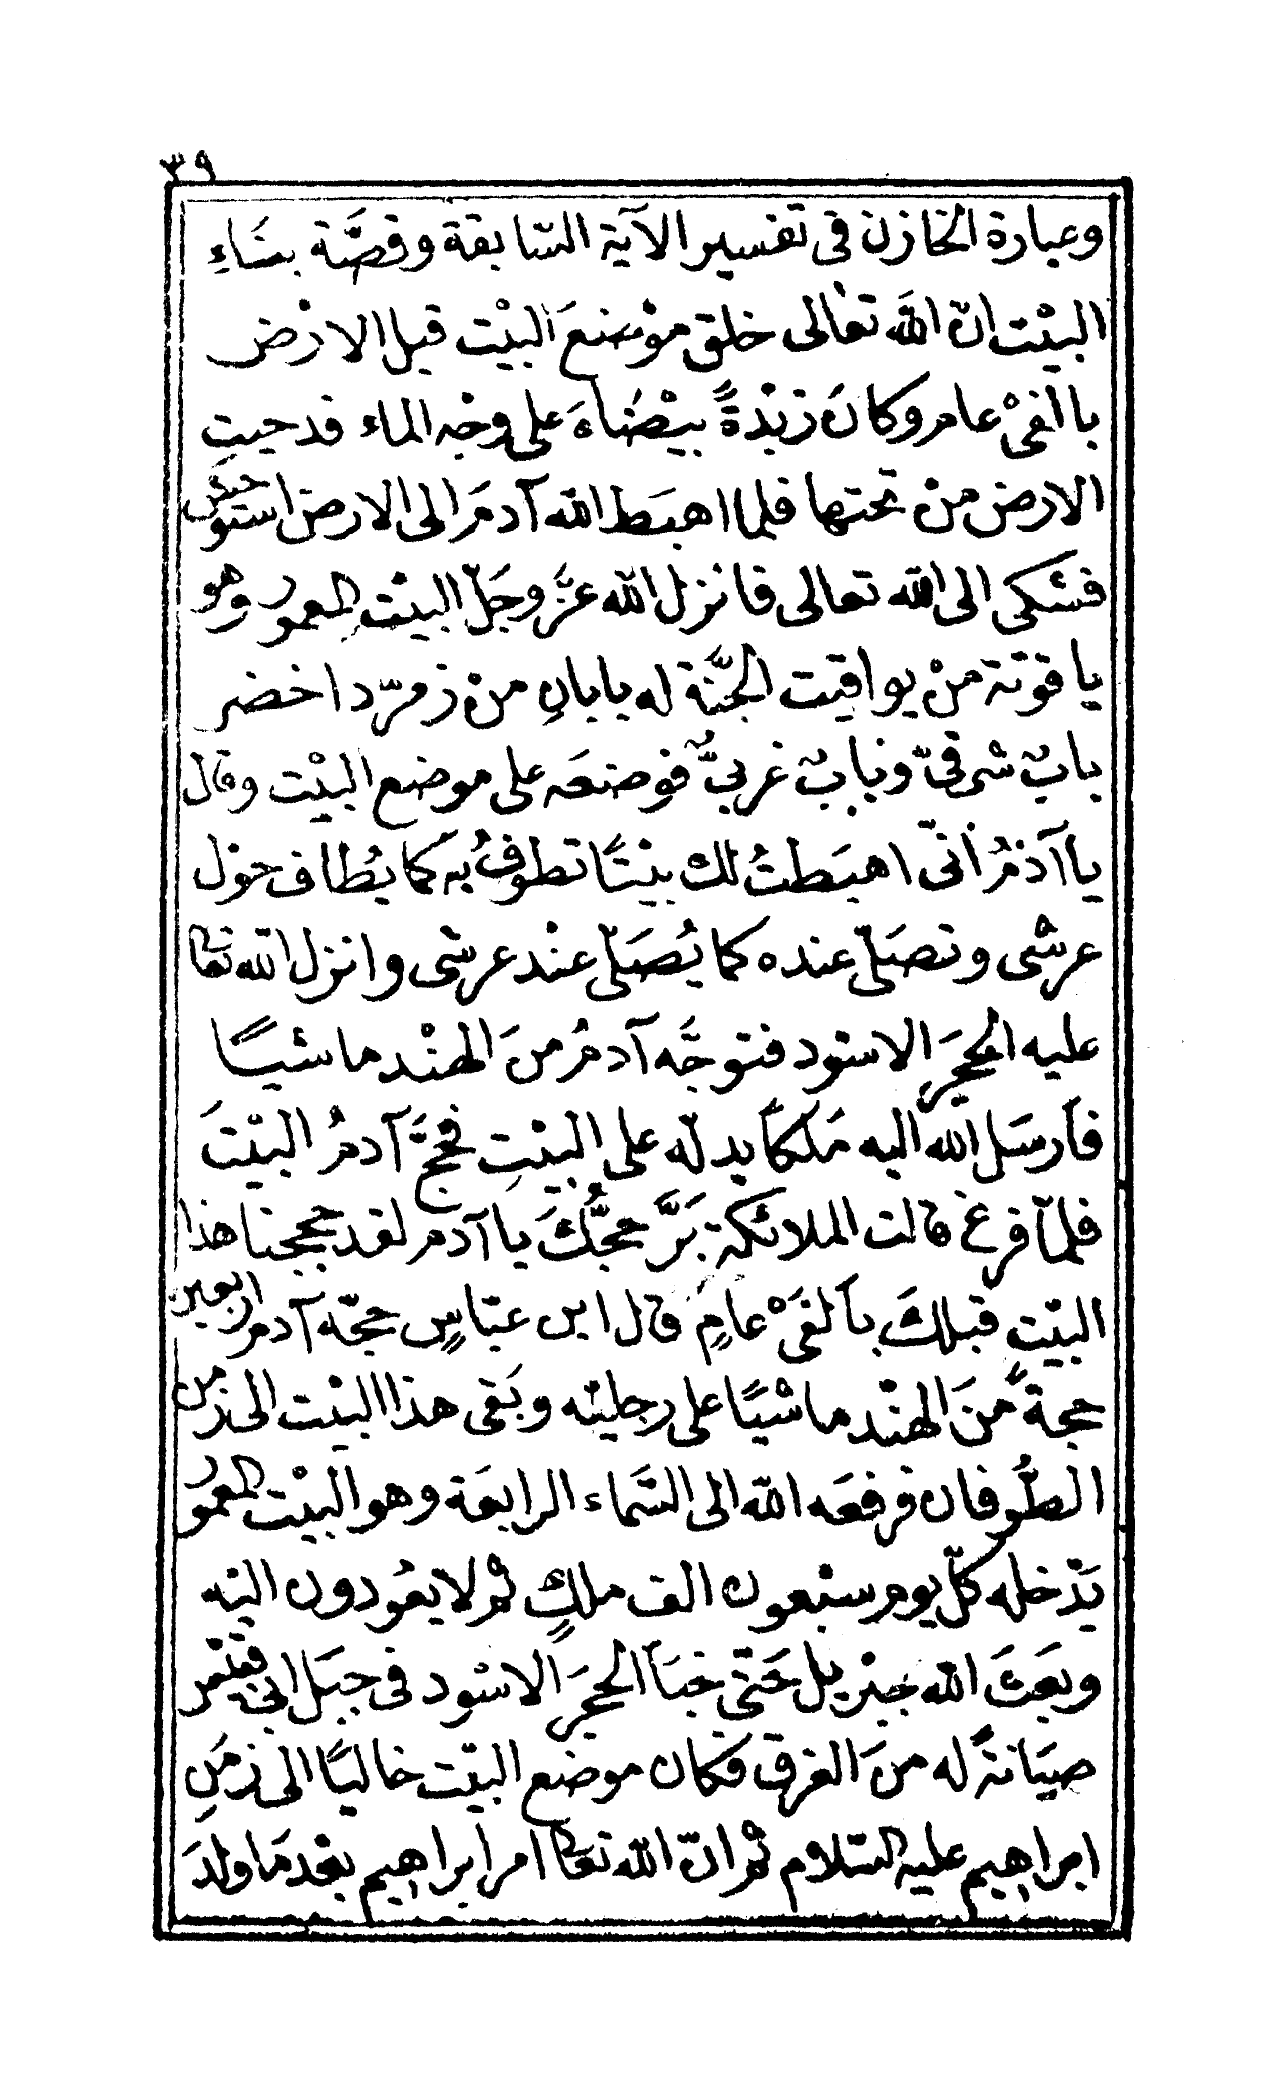 ٣٩
وعبارة الخازن فى تفسير الآية السّابقة وقصَّة بنَاءِ
البيْت انّ اللَّه تعالى خلق موْضعَ البيْت قبل الارْض
باالفىْ عام وكانَ زبْدةً بيْضَاءَ على وجْه الماء فدحيتِ
الارض منْ تحتها فلما اهبَط اللّه آدمَ الى الارض استوحش
فشكى الى اللّه تعالى فانزل اللّه عزَّ وجَلّ البيْت المعمور وهو
ياقوتة منْ يواقيت الجنَّة له بابانِ منْ زمرّد اخضر
بابٌ شرقىّ وبابٌ غربىٌّ فوضعَه على موضع البيْت وقال
ياآدمُ انّى اهبَطتُ لك بيْتًا تطوفُ به كما يُطاف حوْل
عرشى وتصَلّى عنده كما يُصَلّى عنْد عرشى وانزل اللّه تعا
عليه الحجَر الاسْود فتوجَّه آدمُ منَ الهنْد ماشيًا
فأرسَل اللّه اليه مَلكاً يدلّه على البيْتِ فحجَّ آدمُ البيْتَ
فلمّا فرغ قالت الملائكة برَّ حجُّكَ ياآدم لقد حججنا هذا
البيْت قبلكَ بألفَىْ عامٍ قال ابن عبّاسٍ حجّه آدم اربعين
حجةً منَ الهنْد ماشيًا على رجليْه وبَقى هذا البيْت الى زمن
الطُّوفان فرفعَه اللّه الى السَّماء الرابعَة وهو البيْت المعمور
يدْخله كلّ يوم سبْعون الف ملكٍ ثم لا يعُودون اليْه
وبعَثَ اللّه جبْريل حَتّى خبَأ الحجَر الاسْود فى جبَل ابى قبيْس
صيَانةً له منَ الغرق فكان موضع البيْت خاليًا الى زمَنِ
ابراهيم عليه السّلام ثم انّ اللّه تعا امر ابراهيم بعْد مَا ولدَ